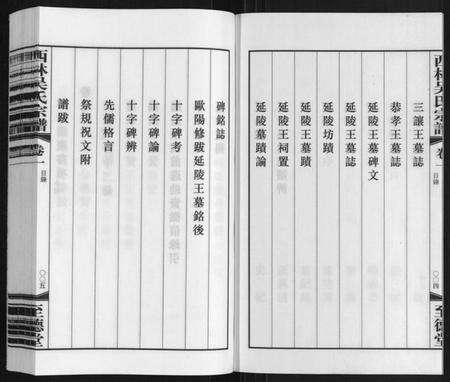 西林吳氏宗譜
卷一
目錄
〇〇四
三讓王墓誌
恭孝王墓誌
延陵王墓碑文
延陵王墓誌
延陵坊蹟
延陵王墓蹟
延陵王祠置
延陵墓蹟論
碑銘誌
歐陽修跋延陵王墓銘後
十字碑考
十字碑論
十字碑辨
先儒格言
祭規祝文附
譜跋
西林吳氏宗譜
卷一
目錄
〇〇五
至德堂